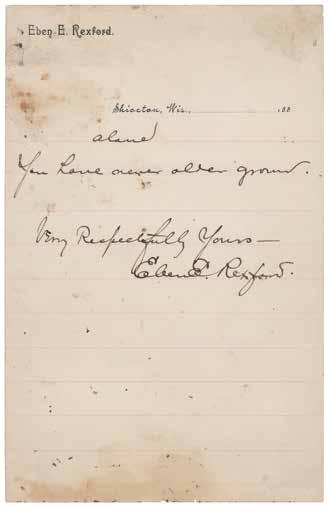 Eben E. Rexford.
Shiocton, Wis., 188
You have never older grown.
Very Respectfully Yours—
Eben E. Rexford.